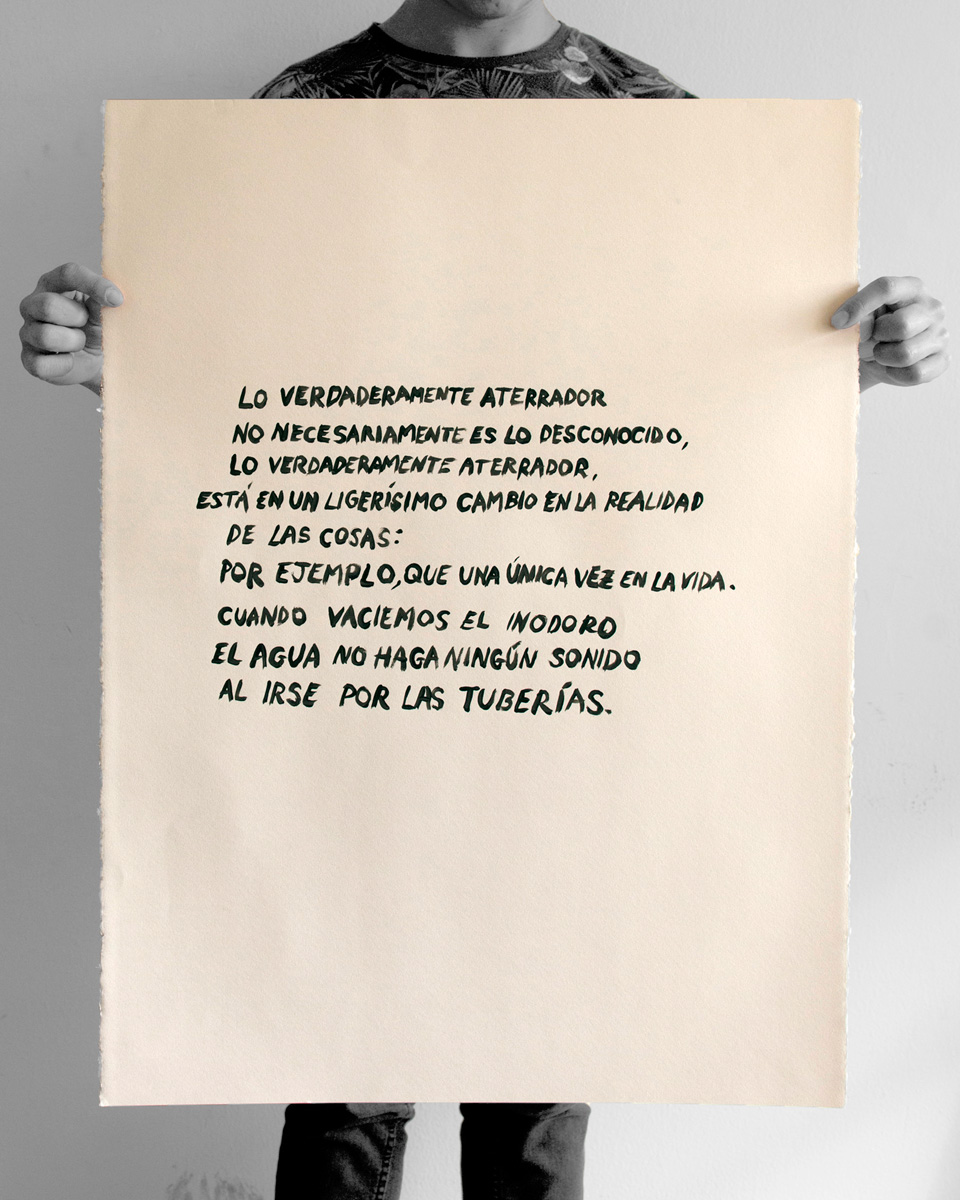 LO VERDADERAMENTE ATERRADOR
NO NECESARIAMENTE ES LO DESCONOCIDO,
LO VERDADERAMENTE ATERRADOR,
ESTÁ EN UN LIGERÍSIMO CAMBIO EN LA REALIDAD
DE LAS COSAS:
POR EJEMPLO, QUE UNA ÚNICA VÉZ EN LA VIDA.
CUANDO VACIEMOS EL INODORO
EL AGUA NO HAGA NINGÚN SONIDO
AL IRSE POR LAS TUBERÍAS.